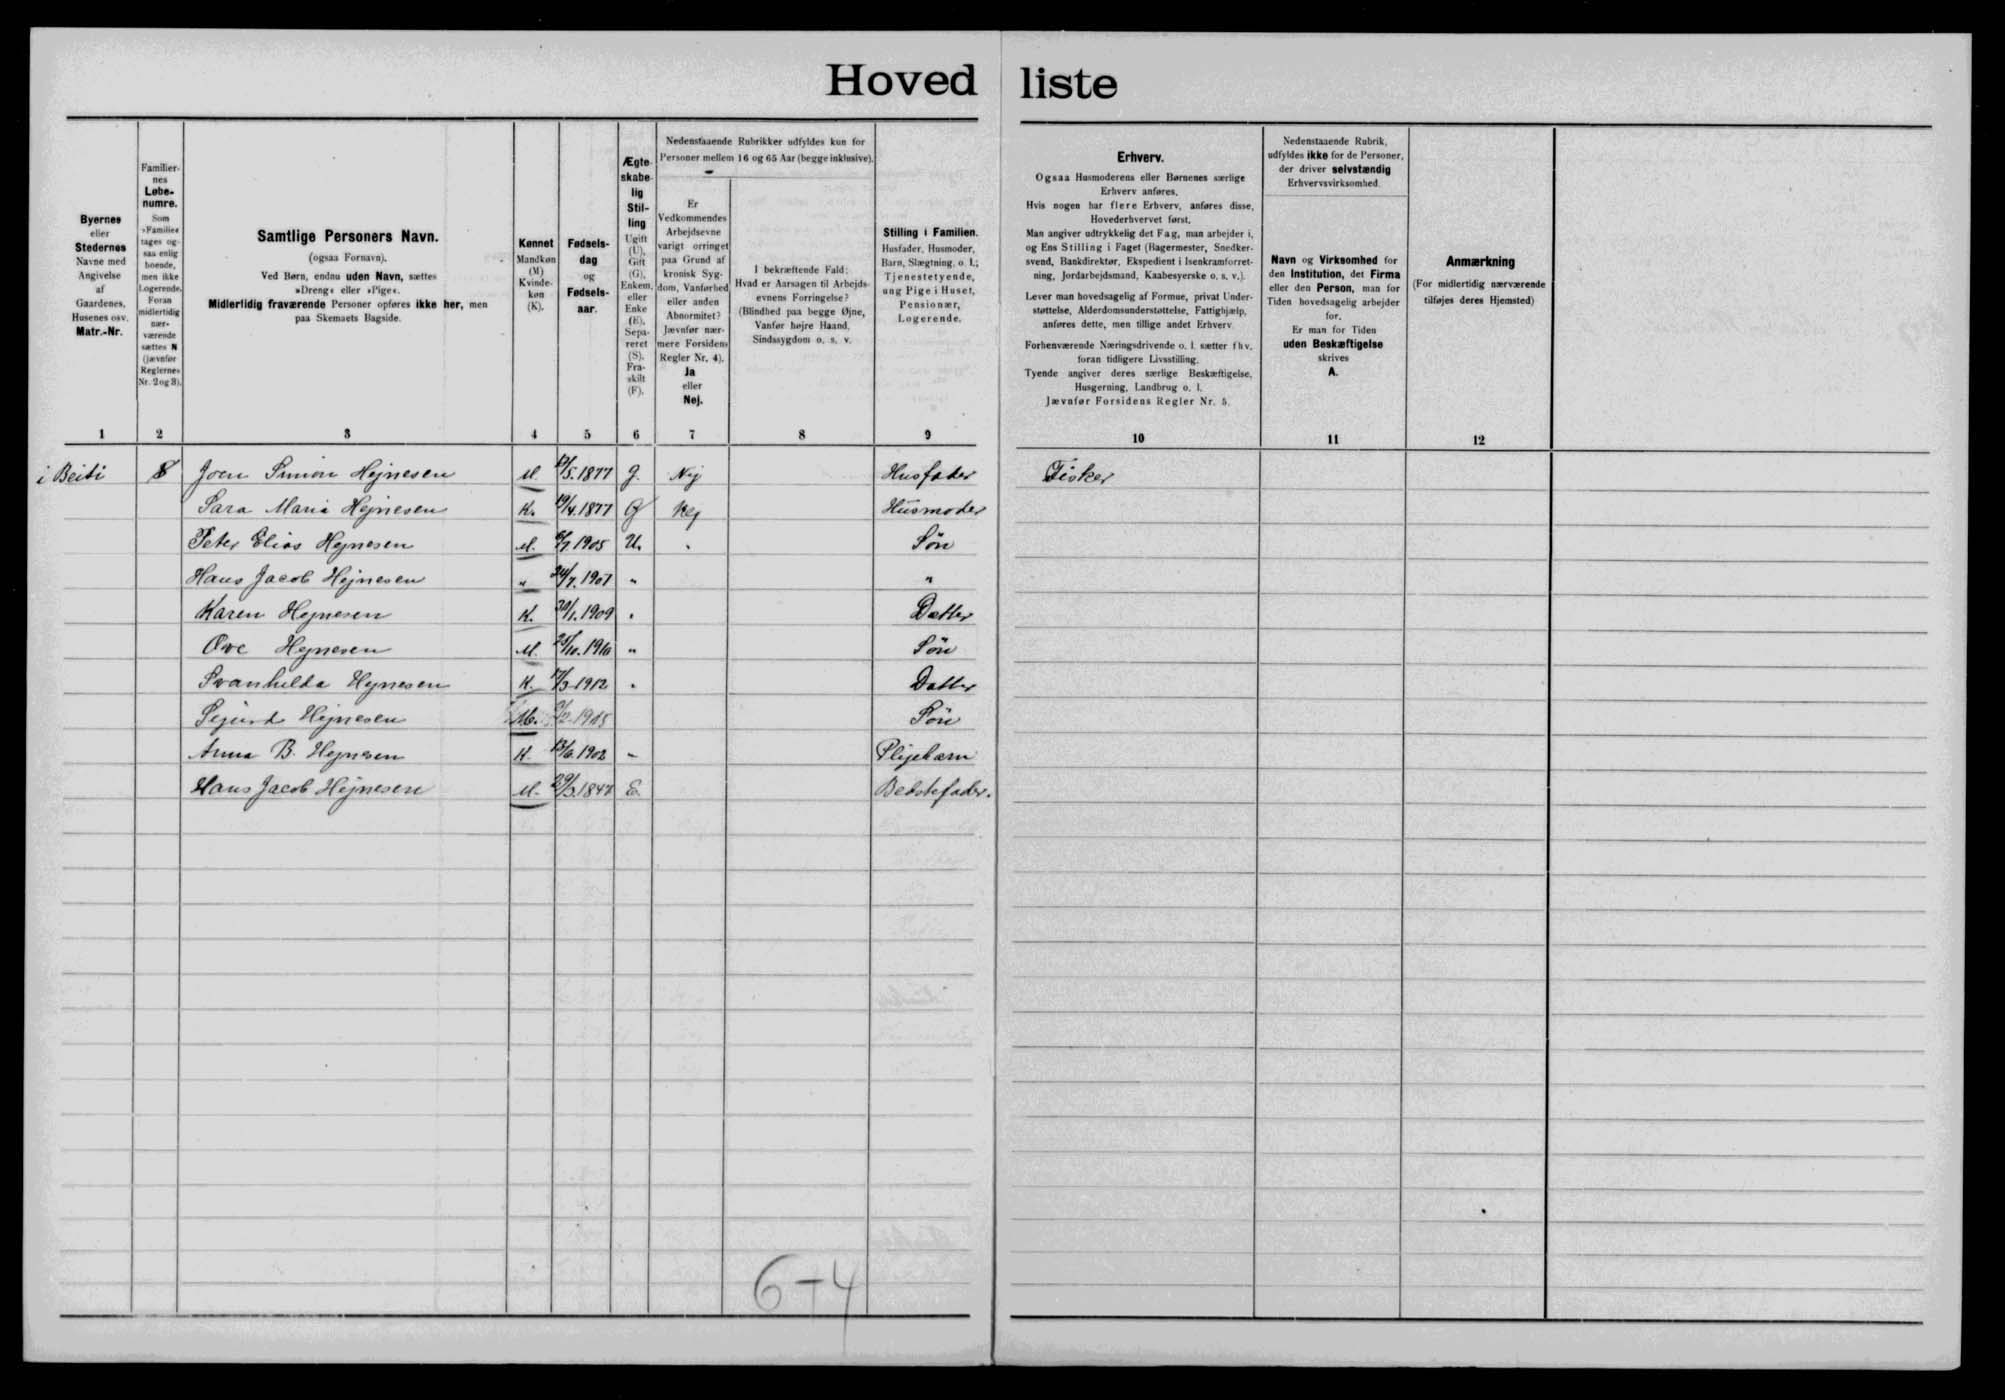 Hoved liste
Byernes
eller
Stedernes
Navne med
Angivelse
af
Gaardenes,
Husenes osv.
Matr.-Nr.
Familier-
nes
Løbe-
numre.
Som
»Familie«
tages og-
saa enlig
boende,
men ikke
Logerende.
Foran
midlertidig
nær-
værende
sættes N
(jævnfør
Reglernes
Nr. 2 og 3).
Samtlige Personers Navn.
(ogsaa Fornavn).
Ved Børn, endnu uden Navn, sættes
»Dreng« eller »Pige«.
Midlertidig fraværende Personer opføres ikke her, men
paa Skemaets Bagside.
Kønnet
Mandkøn
(M)
Kvinde-
køn
(K).
Fødsels-
dag
og
Fødsels-
aar.
Ægte-
skabe-
lig
Stil-
ling
Ugift
(U),
Gift
(G),
Enkem.
eller
Enke
(E),
Sepa-
reret
(S),
Fra-
skilt
(F).
Nedenstaaende Rubrikker udfyldes kun for
Personer mellem 16 og 65 Aar (begge inklusive).
Er
Vedkommendes
Arbejdsevne
varigt forringet
paa Grund af
kronisk Syg-
dom, Vanførhed
eller anden
Abnormitet?
Jævnfør nær-
mere Forsidens
Regler Nr. 4).
Ja
eller
Nej.
I bekræftende Fald:
Hvad er Aarsagen til Arbejds-
evnens Forringelse?
(Blindhed paa begge Øjne,
Vanfør højre Haand,
Sindssygdom o. s. v.
Stilling i Familien.
Husfader, Husmoder,
Barn, Slægtning, o. l.;
Tjenestetyende,
ung Pige i Huset,
Pensionær,
Logerende.
Erhverv.
Ogsaa Husmoderens eller Børnenes særlige
Erhverv anføres.
Hvis nogen har flere Erhverv, anføres disse,
Hovederhvervet først.
Man angiver udtrykkelig det Fag, man arbejder i,
og Ens Stilling i Faget (Bagermester, Snedker-
svend, Bankdirektør, Ekspedient i Isenkramforret-
ning, Jordarbejdsmand, Kaabesyerske o. s. v.).
Lever man hovedsagelig af Formue, privat Under-
støttelse, Alderdomsunderstøttelse, Fattighjælp,
anføres dette, men tillige andet Erhverv.
Forhenværende Næringsdrivende o. l. sætter fhv.
foran tidligere Livsstilling.
Tyende angiver deres særlige Beskæftigelse,
Husgerning, Landbrug o. l.
Jævnfør Forsidens Regler Nr. 5.
Nedenstaaende Rubrik,
udfyldes ikke for de Personer,
der driver selvstændig
Erhvervsvirksomhed.
Navn og Virksomhed for
den Institution, det Firma
eller den Person, man for
Tiden hovedsagelig arbejder
for.
Er man for Tiden
uden Beskæftigelse
skrives
A.
Anmærkning
(For midlertidig nærværende
tilføjes deres Hjemsted)
1 2 3 4 5 6 7 8 9 10 11 12
i Beiti 8 Joen Simon Hejnesen M. /5.1877 G. Nej Husfader Fisker
Sara Maria Hejnesen K. 19/4.1877 G Nej Husmoder
Peter Elias Hejnesen M. 1905 U. Søn
Hans Jacob Hejnesen " 24/7.1907 " "
Karen Hejnesen K. 30/1.1909 " Datter
Ove Hejnesen M. /10.1910 " Søn
Svanhilda Hejnesen K. 17/3 1912 " Datter
Sejurd Hejnesen M. 1915 Søn
Anna B. Hejnesen K. 13/6.1902 " Plejebarn
Hans Jacob Hejnesen M. 29/3.1847 E. Bedstefader.
6-4